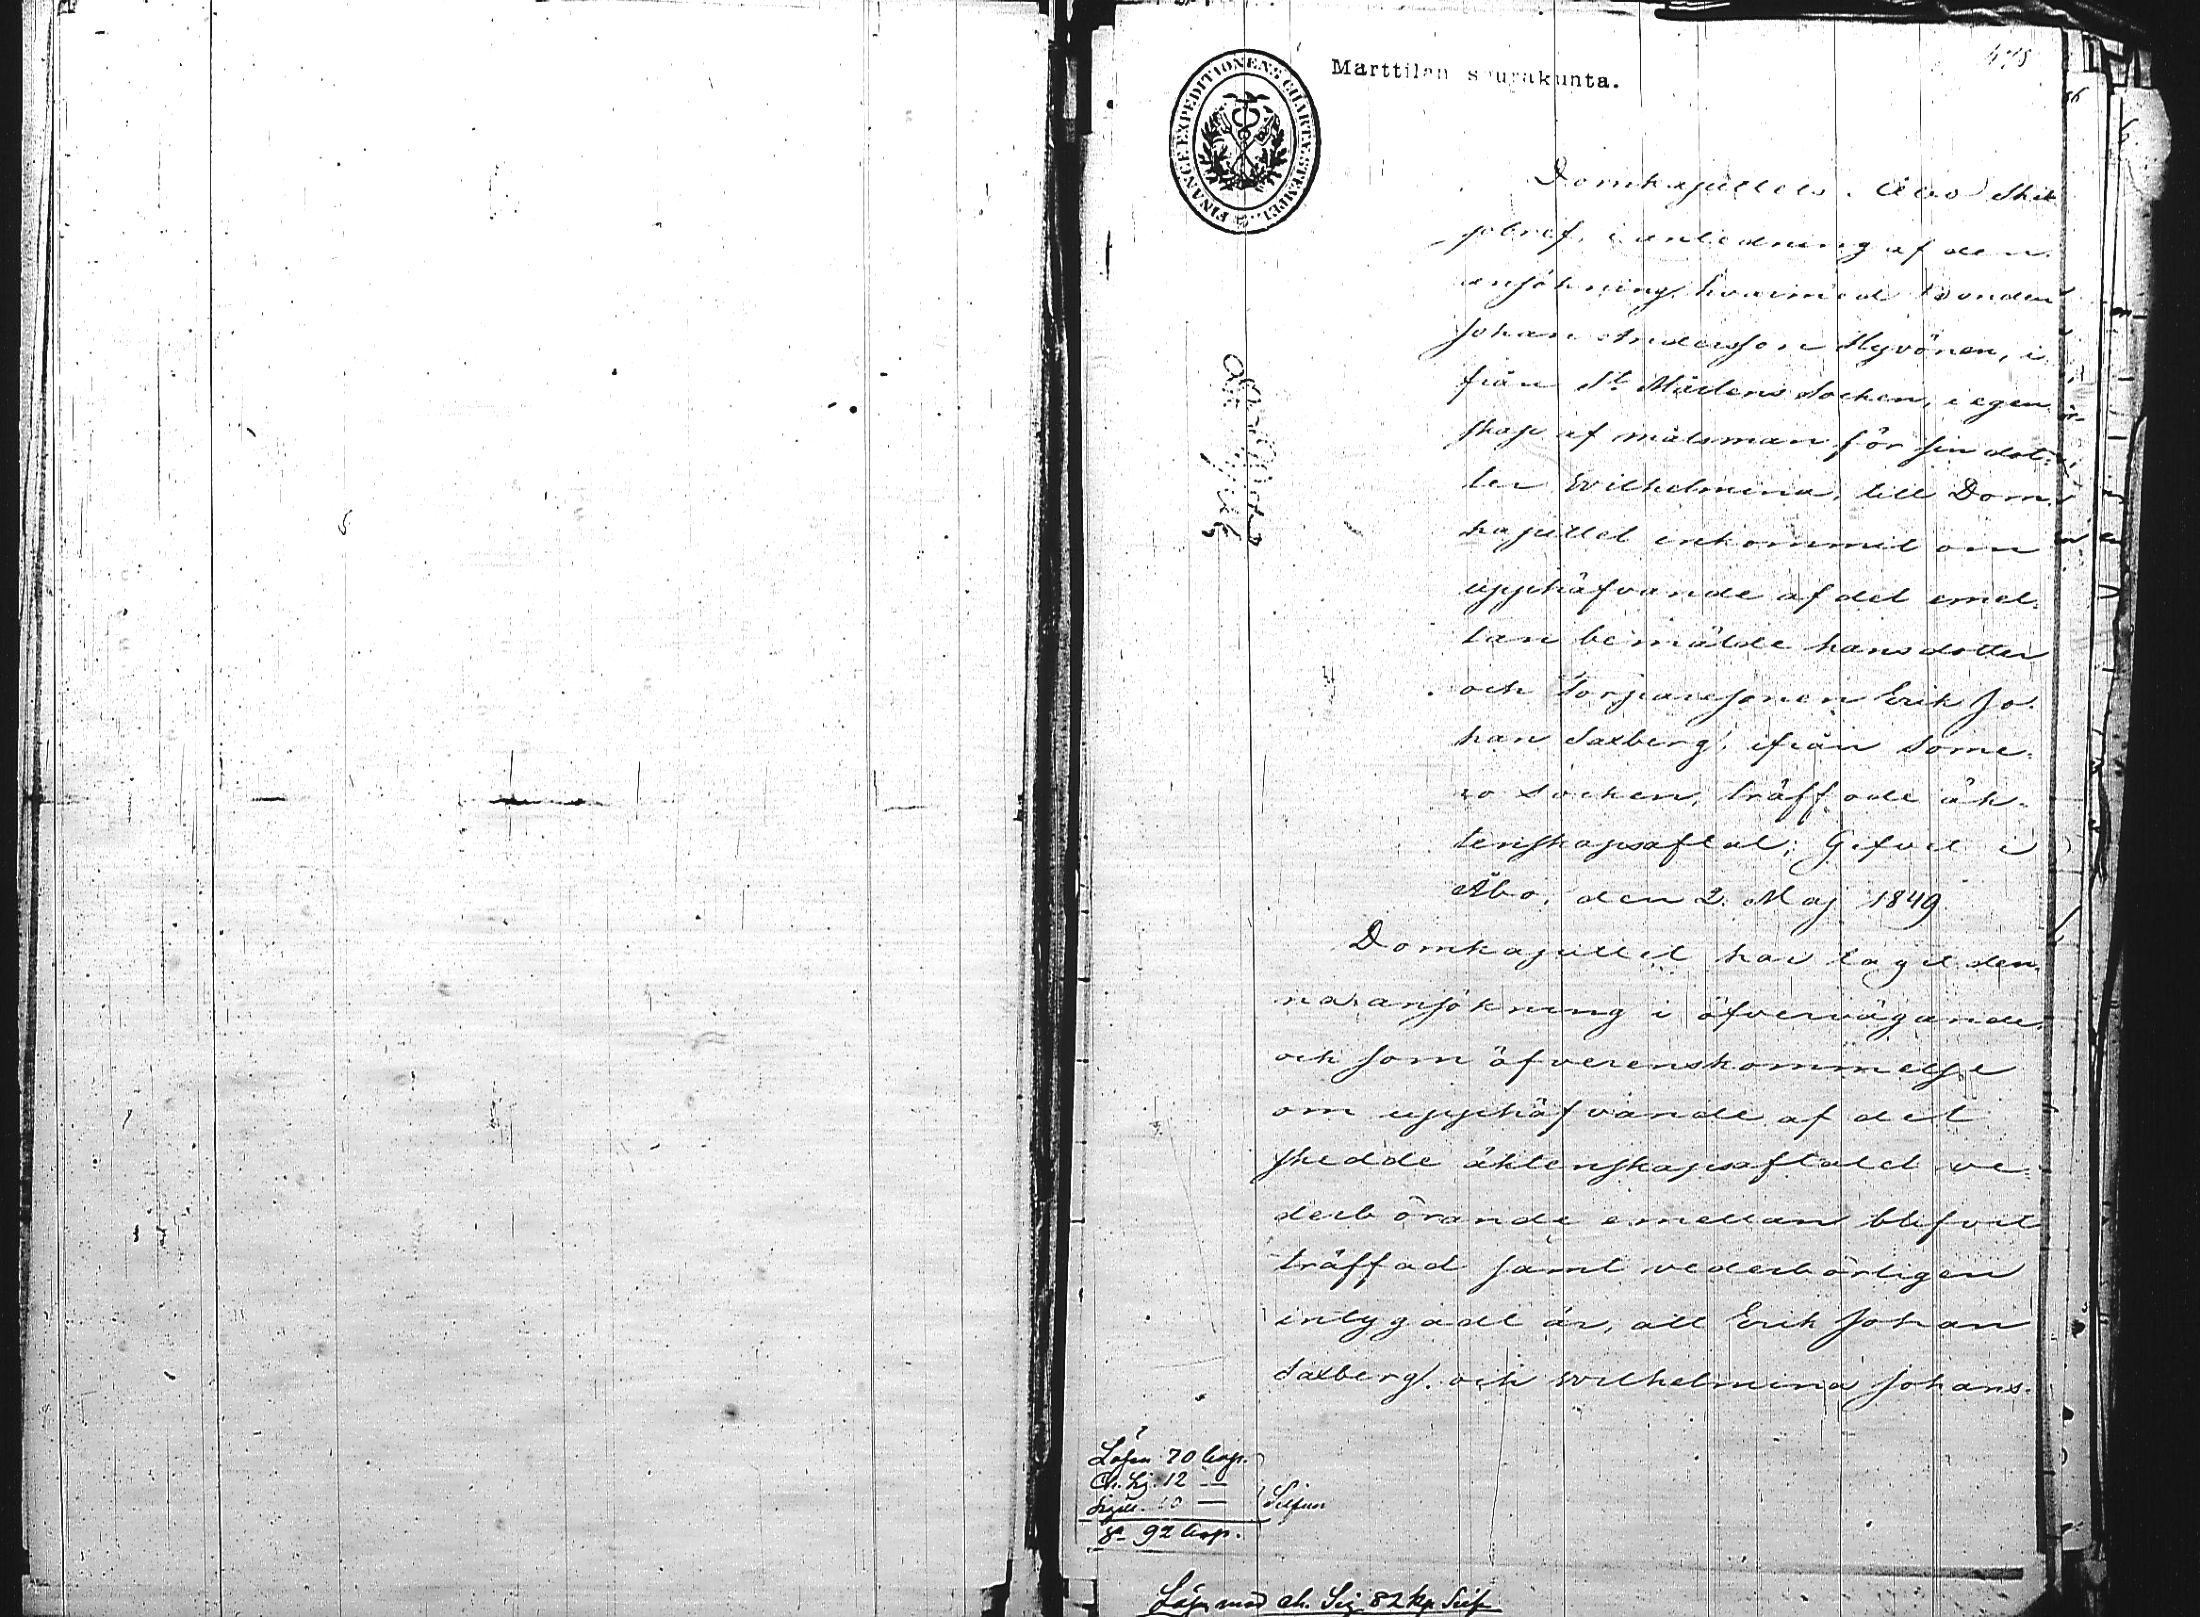 478
FINANCE EXPEDITIONENS CHARTÆ STEMPEL
Marttilan seurakunta.
Domkapitlets i Åbo Skils
sobref, i anledning af den
ansökning, hvarmed Bonden
Johan Andersson Hyvönen, i
från S:t Mårtens Socken, i egen
skap af målsman för sin dot-
ter Wilhelmina, till Dom-
kapitlet inkommit om
upphäfvande af det emel-
lan bemälde hans dotter
och Torparesonen Erik Jo-
han Saxberg, ifrån Some-
ro Socken, träffade äk-
tenskapsaftal; Gifvet i
Åbo, den 2. Maj 1849.
Domkapitlet har tagit den-
na ansökning i öfvervägande,
och som öfverenskommelse
om upphäfvande af det
skedde äktenskapsaftalet ve-
derbörande emellan blifvit
träffad samt vederbörligen
intygadt är, att Erik Johan
Saxberg och Wilhelmina Johans-
Lösen 70 kop.
Ch. Sig. 12 —
Sigill. 10 — Silfver
S:a 92 kop.
Lösn med ch. Sig 82 kp Silf